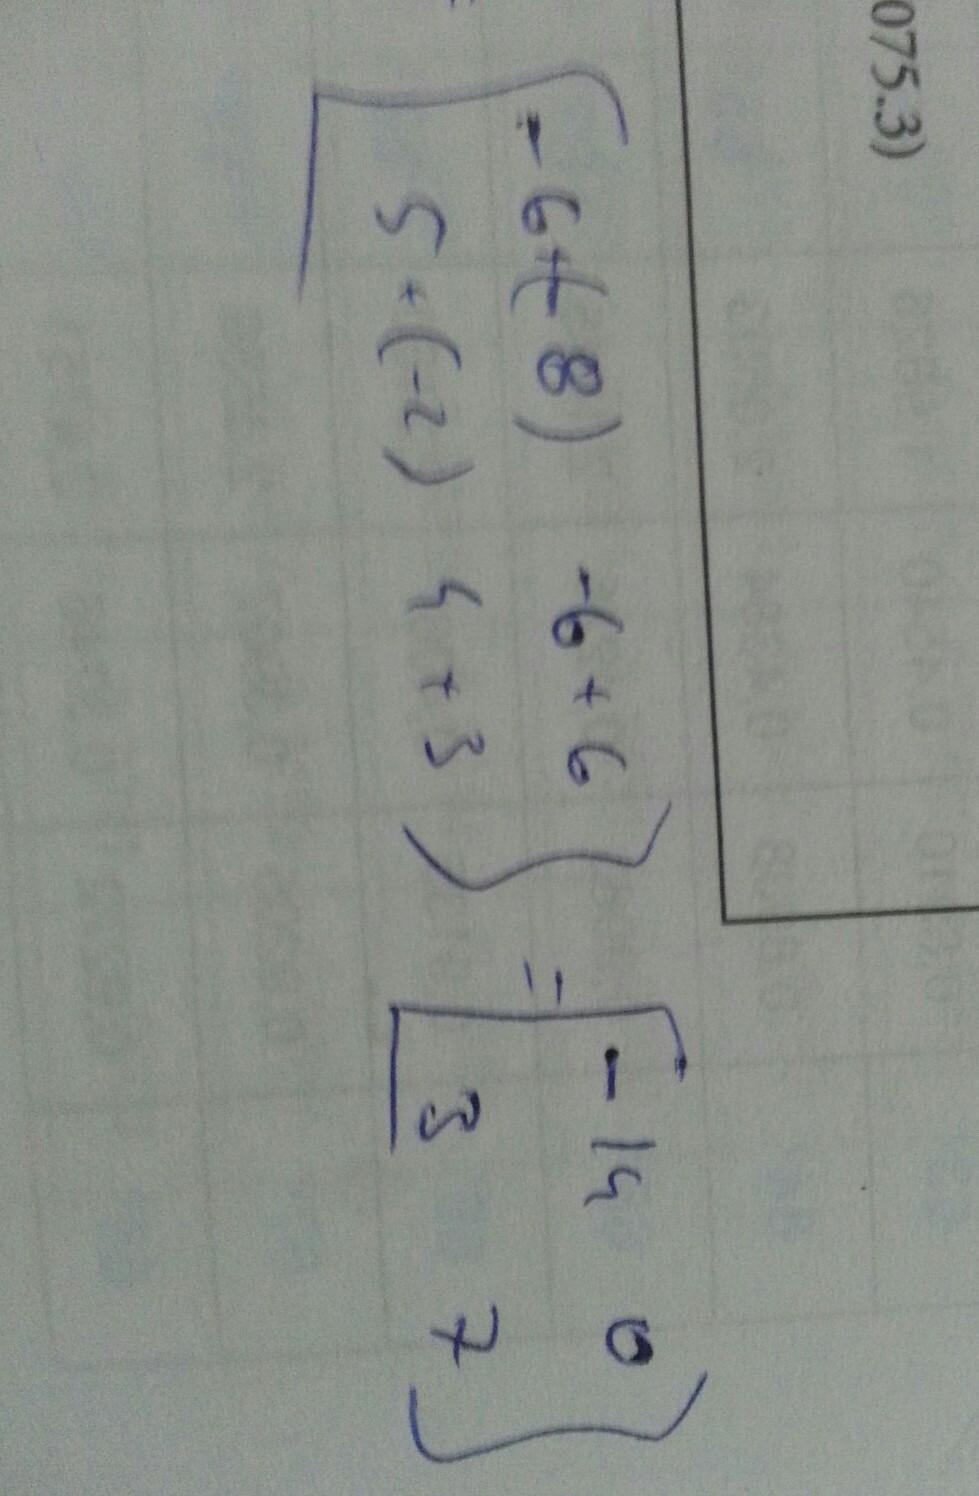 075.3)
=
-6+(-8) -6+6
5+(-2) 4+3
=
-14 0
3 7